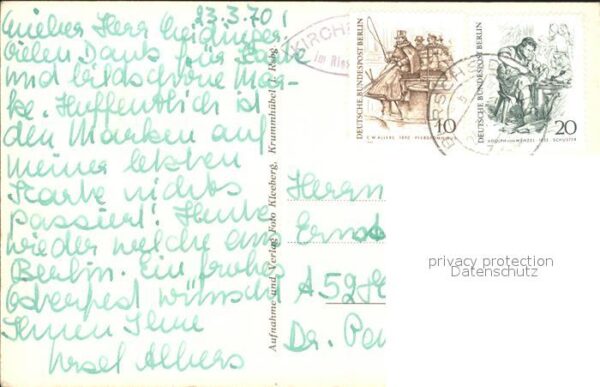 23.3.70
Lieber Herr Weidinger
vielen Dank für Karte
und bildschöne Mar-
ke. Hoffentlich ist
den Marken auf
meiner letzten
Karte nichts
passiert! Heute
wieder welche aus
Berlin. Ein frohes
Osterfest wünscht
Ihnen Ihre
Ursel Albers
Aufnahme und Verlag Foto Kleeberg, Krummhübel i. Rsgb.
KIRCHE
im Ries
DEUTSCHE BUNDESPOST BERLIN
10
C.W. ALLERS
DEUTSCHE BUNDESPOST BERLIN
20
ADOLPH VON MENZEL SCHUSTER
Herrn
Ernst
A 52
Dr.
privacy protection
Datenschutz